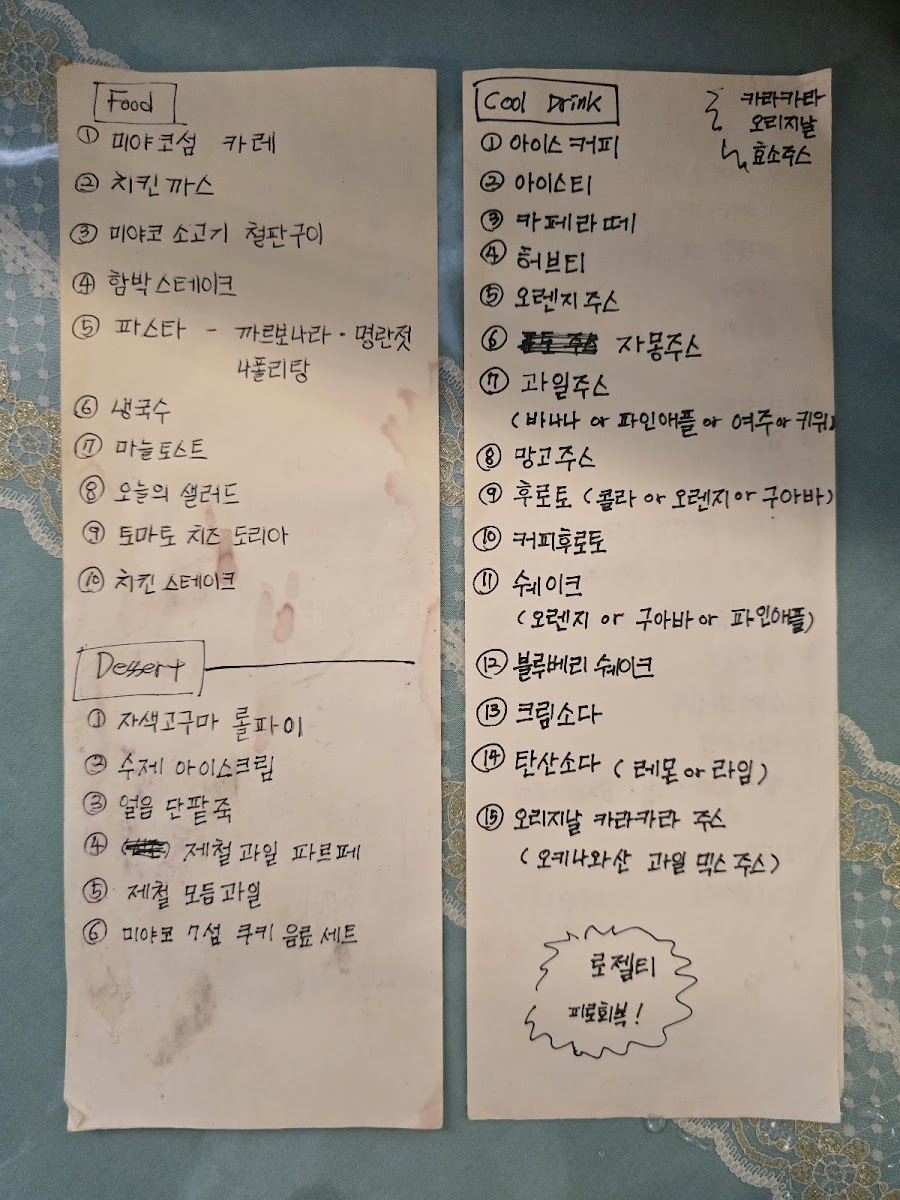 Food
① 미야코섬 카레
② 치킨까스
③ 미야코 소고기 철판구이
④ 함박스테이크
⑤ 파스타 - 까르보나라·명란젓
나폴리탕
⑥ 냉국수
⑦ 마늘토스트
⑧ 오늘의 샐러드
⑨ 토마토 치즈 도리아
⑩ 치킨 스테이크
Dessert
① 자색고구마 롤파이
② 수제 아이스크림
③ 얼음 단팥죽
④ 제철과일 파르페
⑤ 제철 모듬과일
⑥ 미야코 7섬 쿠키 음료 세트
Cool Drink
카라카라
오리지날
효소주스
① 아이스커피
② 아이스티
③ 카페라떼
④ 허브티
⑤ 오렌지주스
⑥ 자몽주스
⑦ 과일주스
(바나나 or 파인애플 or 여주 or 키위)
⑧ 망고주스
⑨ 후로토 (콜라 or 오렌지 or 구아바)
⑩ 커피후로토
⑪ 쉐이크
(오렌지 or 구아바 or 파인애플)
⑫ 블루베리 쉐이크
⑬ 크림소다
⑭ 탄산소다 (레몬 or 라임)
⑮ 오리지날 카라카라 주스
(오키나와산 과일 믹스 주스)
로젤티
피로회복!